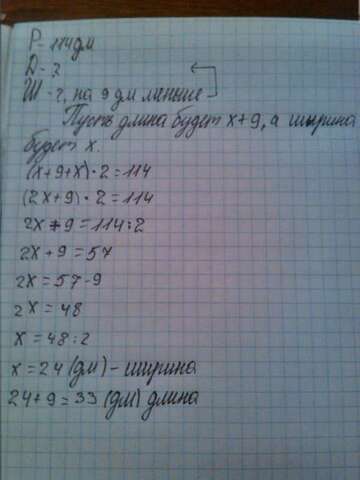 P - 114 дм
Д - ?
Ш - ?, на 9 дм меньше
Пусть длина будет x+9, а ширина
будет x.
(x+9+x)·2=114
(2x+9)·2=114
2x+9=114:2
2x+9=57
2x=57-9
2x=48
x=48:2
x=24 (дм) - ширина
24+9=33 (дм) длина